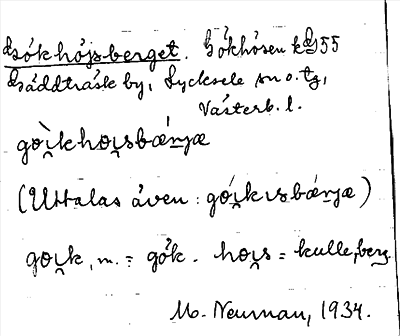 Gökhöjsberget. Gökhösen k 55
Gäddträsk by, Lycksele sn o. tg,
Västerb. l.
go̯i̯kho̯i̯sbæṉjæ
(Uttalas även: go̯i̯kısbæṉjæ)
goi̯k, m. = gök. hoi̯s = kulle, berg.
M. Neuman, 1934.